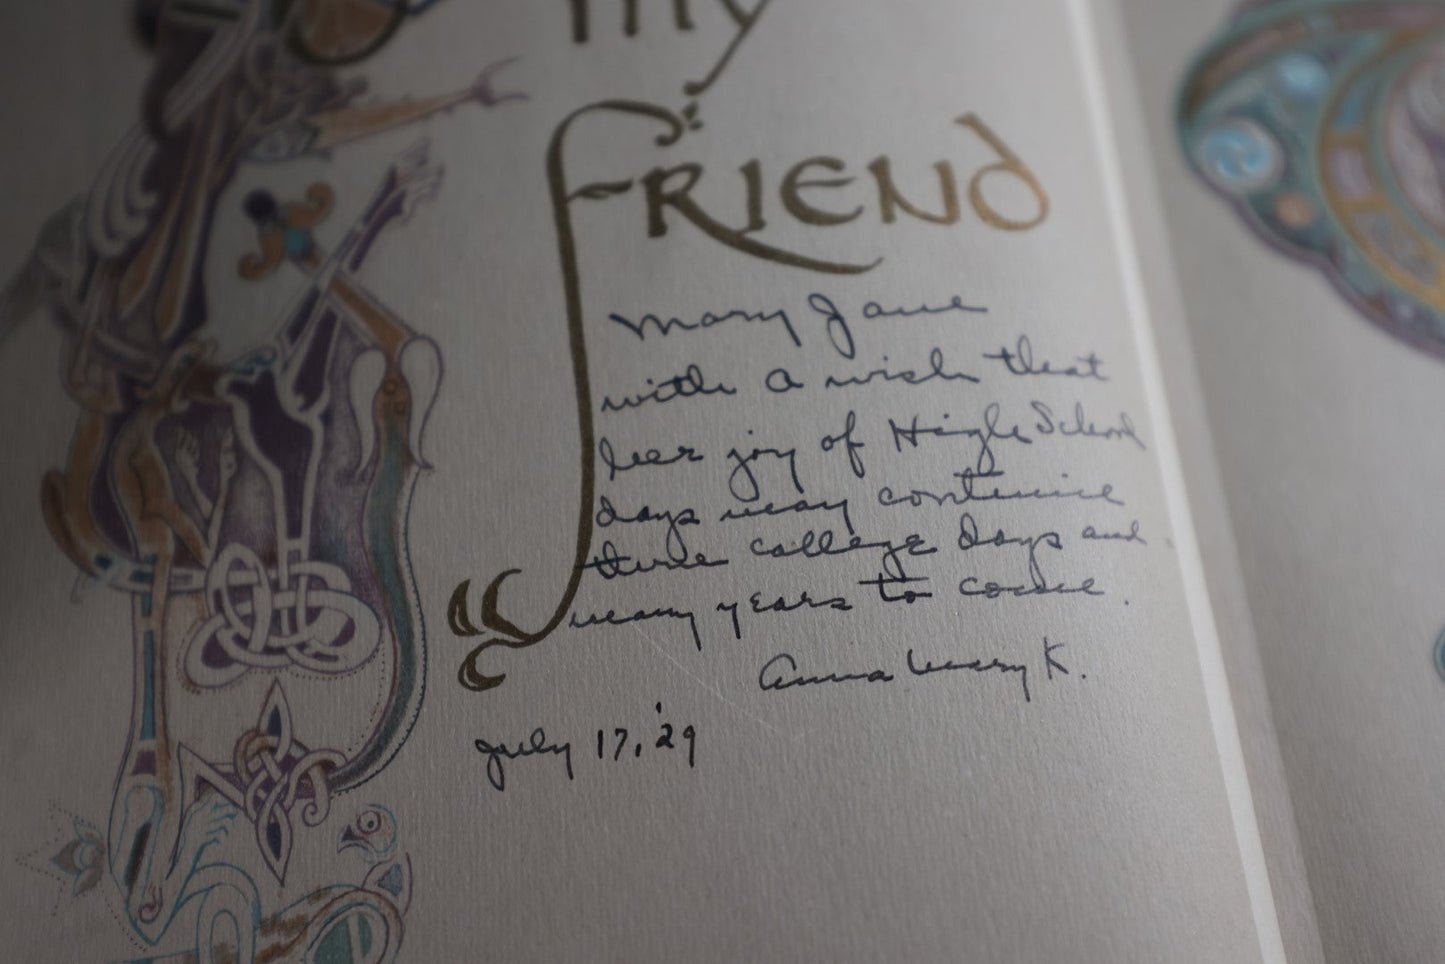 my
FRIEND
Mary Jane
with a wish that
her joy of High School
days may continue
thru college days and
many years to come.
Anna Mary K.
July 17, '29